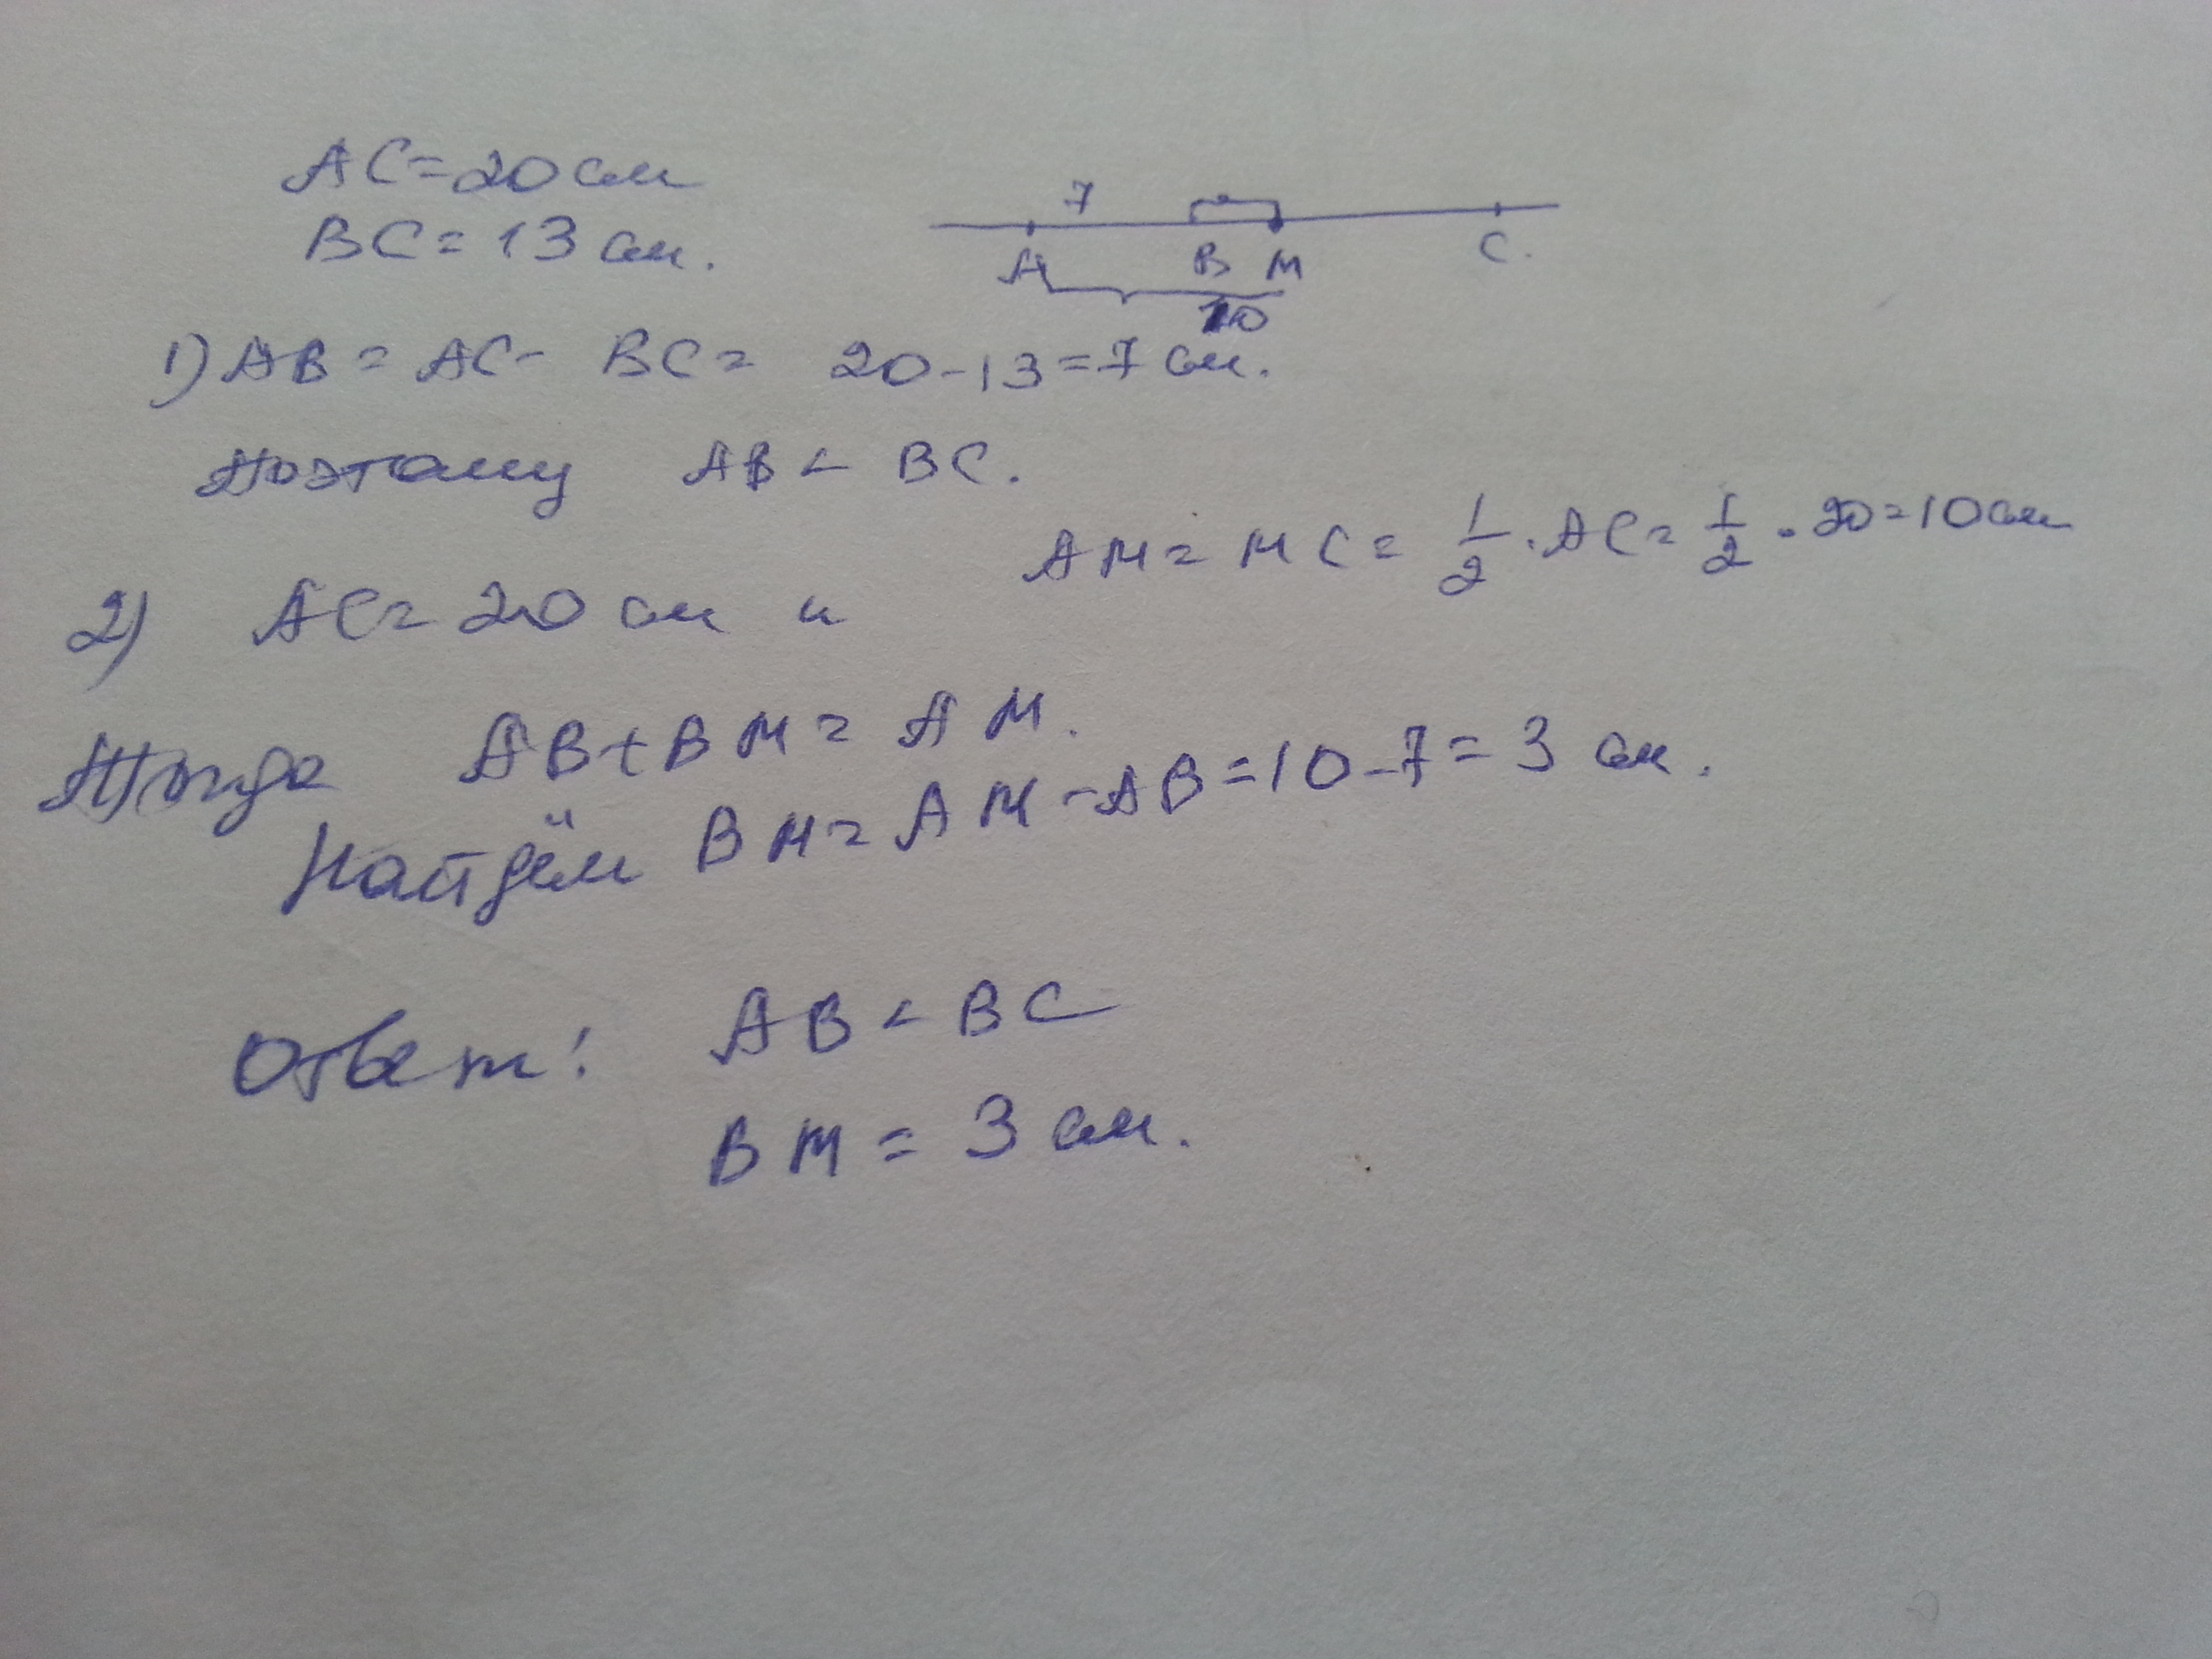 AC=20 см
BC=13 см.
7
A B M C.
10
1) AB = AC - BC = 20-13=7 см.
Поэтому AB < BC.
2) AC = 20 см и AM = MC = 1/2 · AC = 1/2 · 20 = 10 см
Тогда AB + BM = AM.
Найдём BM = AM - AB = 10 - 7 = 3 см.
Ответ: AB < BC
BM = 3 см.